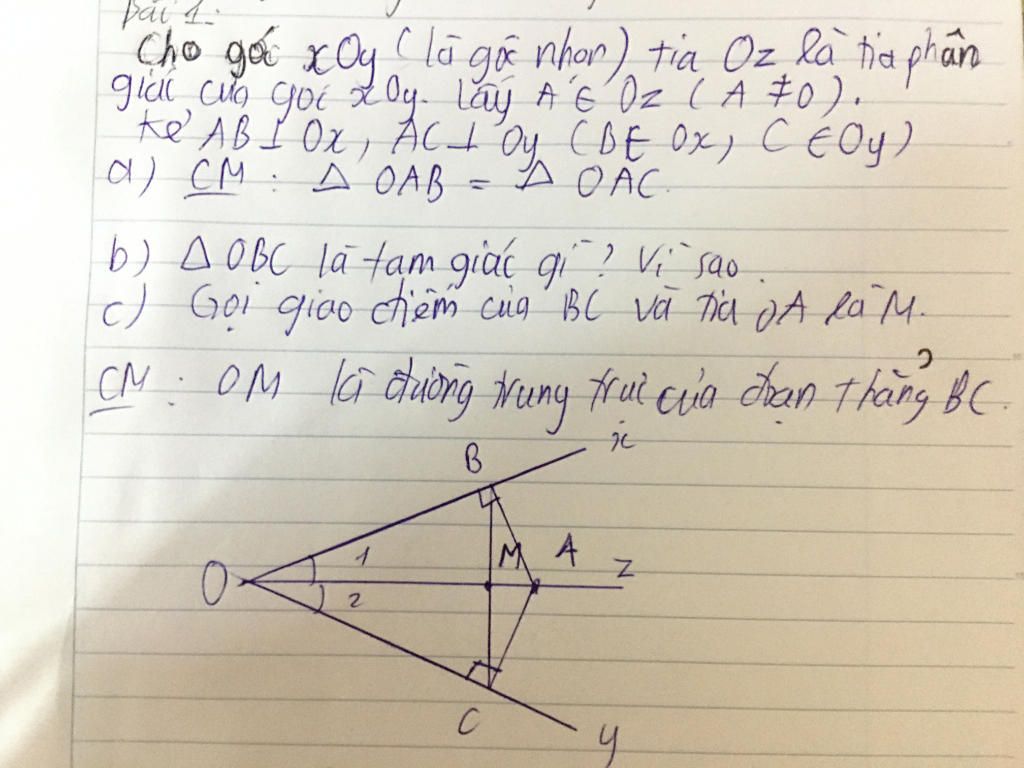 Bài 1:
Cho góc xOy (là góc nhọn) tia Oz là tia phân
giác của góc xOy. Lấy A ∈ Oz (A ≠ O).
Kẻ AB ⊥ Ox, AC ⊥ Oy (B ∈ Ox, C ∈ Oy)
a) CM: Δ OAB = Δ OAC.
b) Δ OBC là tam giác gì? Vì sao.
c) Gọi giao điểm của BC và tia OA là M.
CM: OM là đường trung trực của đoạn thẳng BC.
B
x
O
1
2
M
A
z
C
y